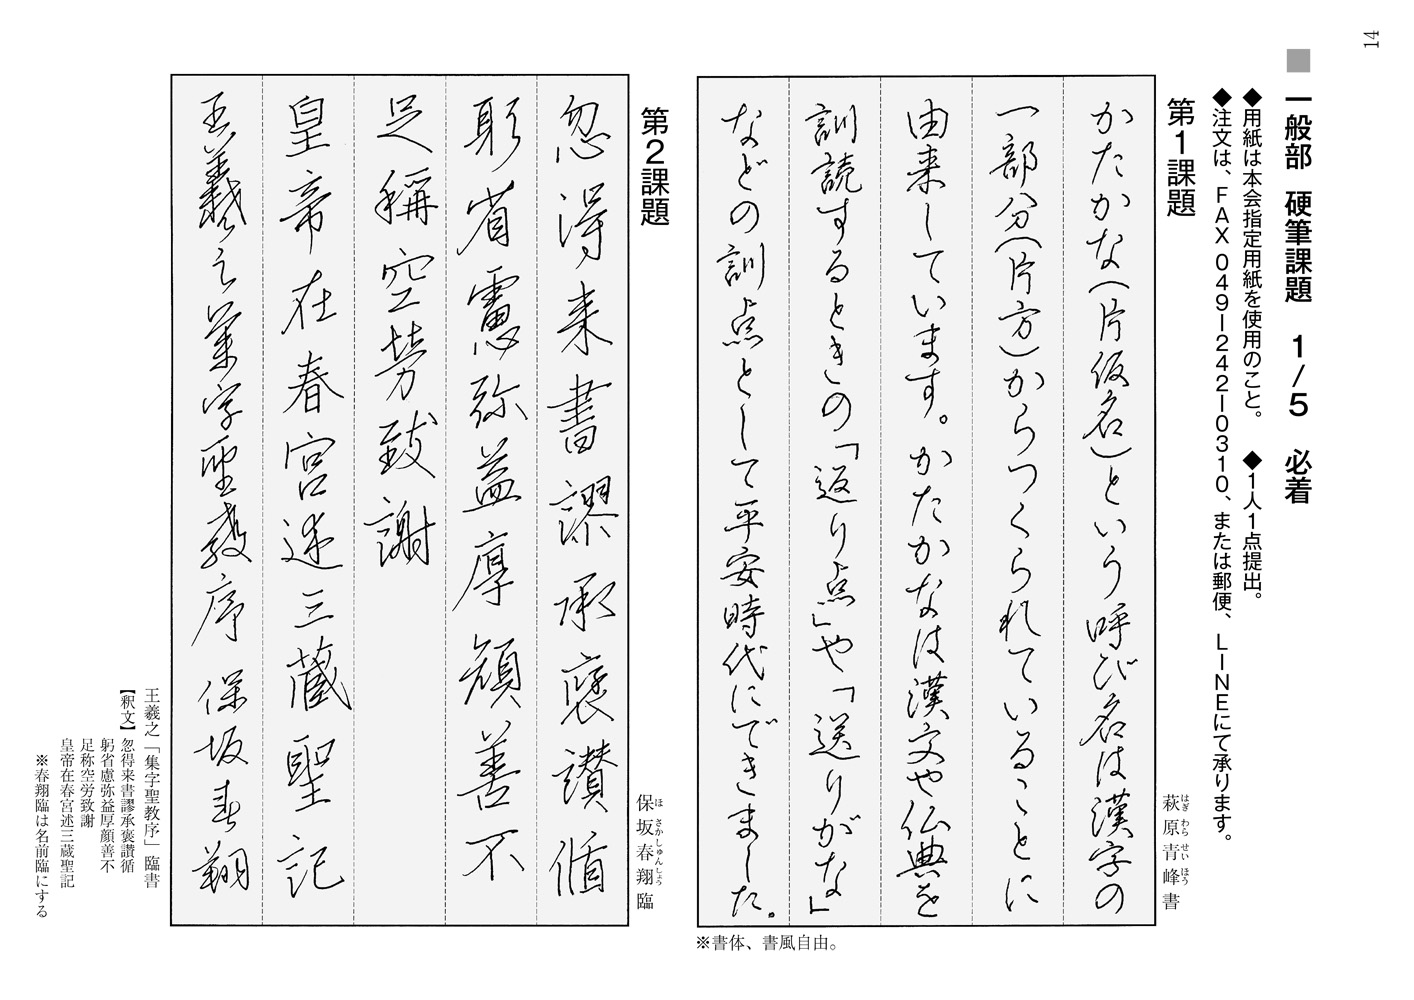 14
■ 一般部 硬筆課題 1/5 必着
◆用紙は本会指定用紙を使用のこと。 ◆1人1点提出。
◆注文は、FAX 049-242-0310、または郵便、LINEにて承ります。
第1課題
萩原青峰書
はぎわらせいほう
かたかな(片仮名)という呼び名は漢字の
一部分(片方)からつくられていることに
由来しています。かたかなは漢文や仏典を
訓読するときの「返り点」や「送りがな」
などの訓点として平安時代にできました。
※書体、書風自由。
第2課題
保坂春翔臨
ほさかしゅんしょう
忽得来書謬承褒讃循
躬省慮弥益厚顔善不
足稱空勞致謝
皇帝在春宮述三蔵聖記
王羲之集字聖教序 保坂春翔
王羲之「集字聖教序」臨書
【釈文】忽得来書謬承褒讃循
躬省慮弥益厚顔善不
足称空労致謝
皇帝在春宮述三蔵聖記
※春翔臨は名前臨にする